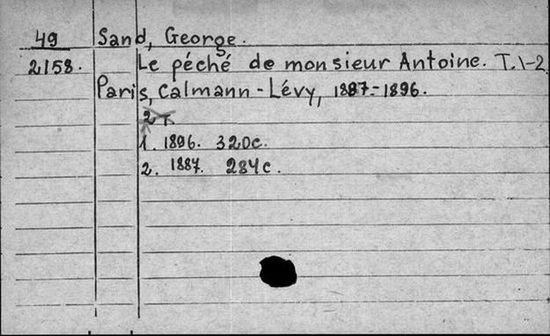 49 Sand, George.
2158. Le péché de monsieur Antoine. T. 1-2
Paris, Calmann-Lévy, 1887-1896.
2 т.
1. 1896. 320 с.
2. 1887. 284 с.